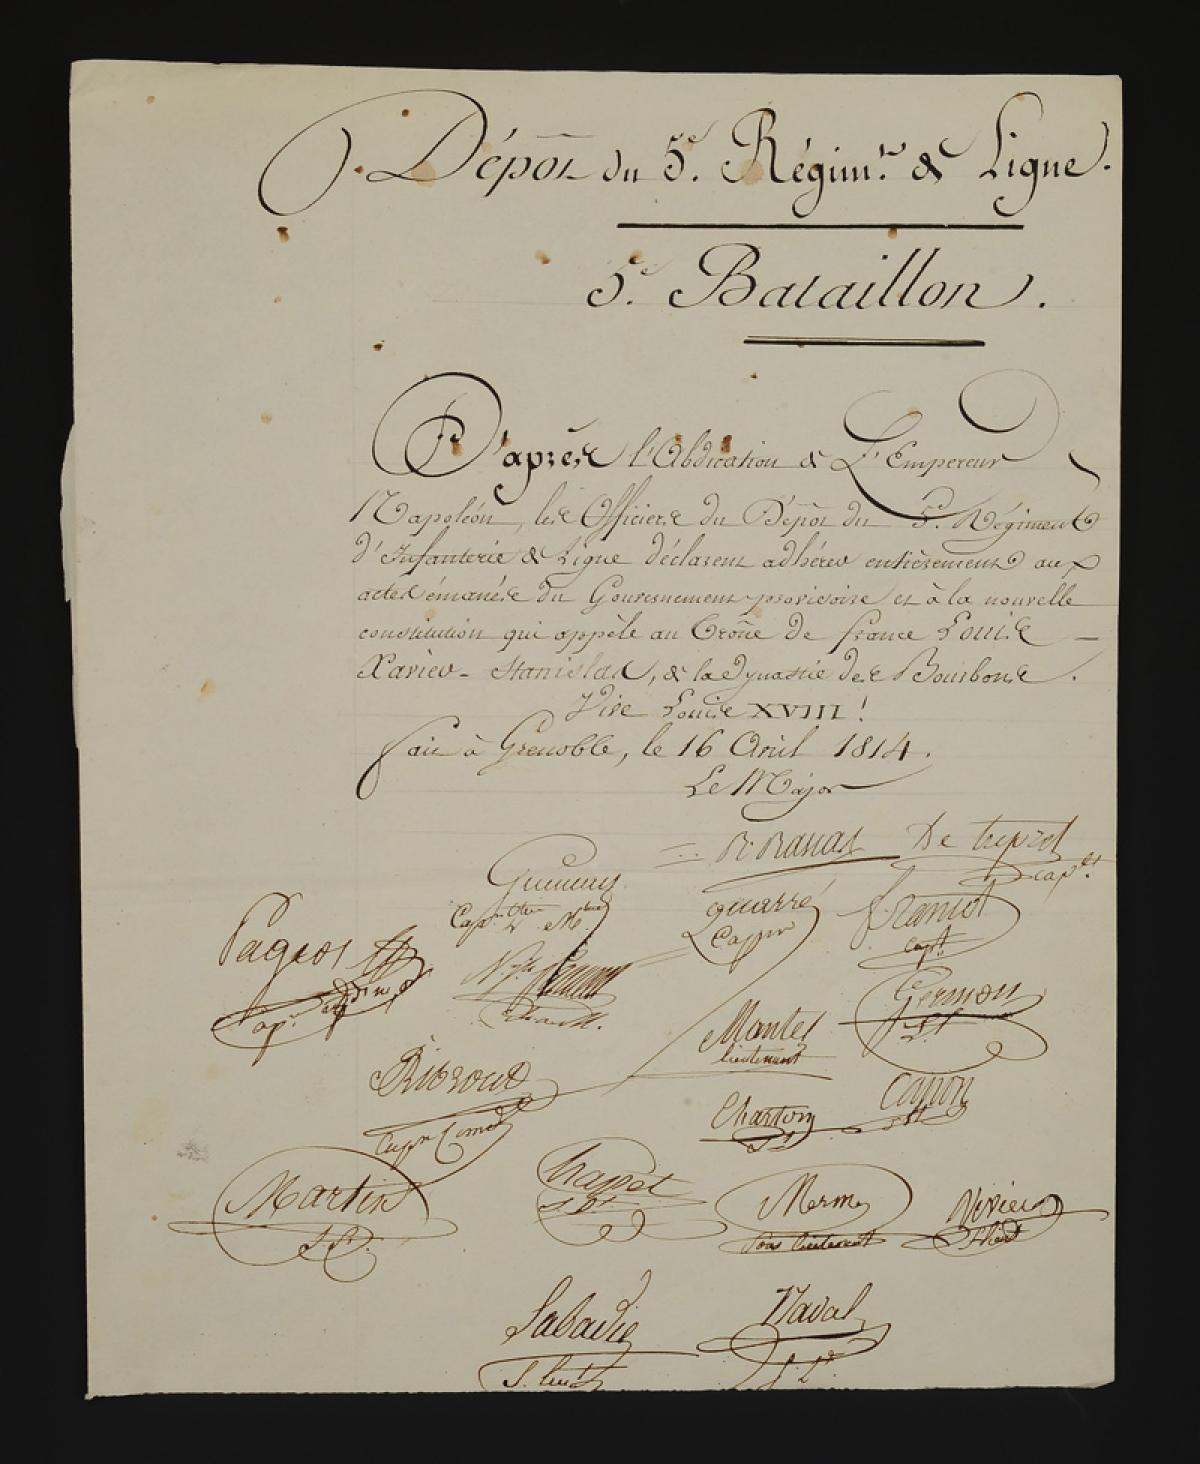 Dépôt du 5e. Régimt. de Ligne.
5e. Bataillon.
D'après l'Abdication de L'Empereur
Napoléon, les Officiers du Dépôt du 5e. Régiment
d'Infanterie de Ligne déclarent adhérer entièrement aux
actes émanés du Gouvernement provisoire et à la nouvelle
constitution qui appèle au Trône de france Louis
Xavier-Stanislas, & la dynastie des Bourbons.
Vive Louis XVIII!
fait à Grenoble, le 16 Avril 1814.
Le Major
De
capne.
Capne.
quarré
Capne
capt.
Pageot
Cap.
Germon
Lt
Mantel
lieutenant
Capne
Charton
Lt
Capon
s Lt
Martin
S Lt.
Chapet
S Lt
Merme
Sous lieutenant
Vivier
S lieut
Labadie
S. lieut
Naval
S. Lt.